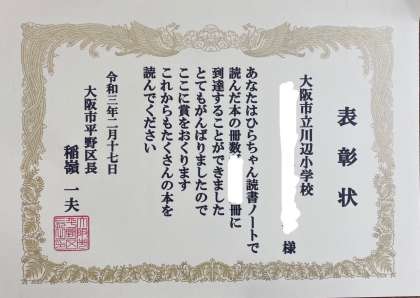 表彰状
大阪市立川辺小学校
様
あなたはひらちゃん読書ノートで
読んだ本の冊数 冊に
到達することができました
とてもがんばりましたので
ここに賞をおくります
これからもたくさんの本を
読んでください
令和三年二月十七日
大阪市平野区長
稲嶺一夫